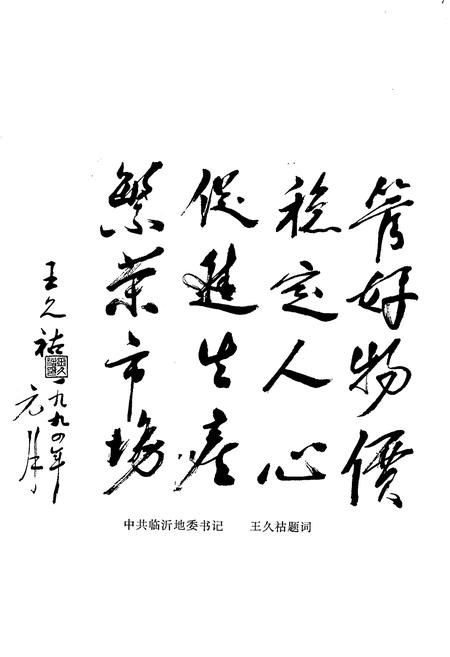 管好物價
稳定人心
促進生産
繁荣市場
王久祜
一九九四年
元月
中共临沂地委书记 王久祜题词